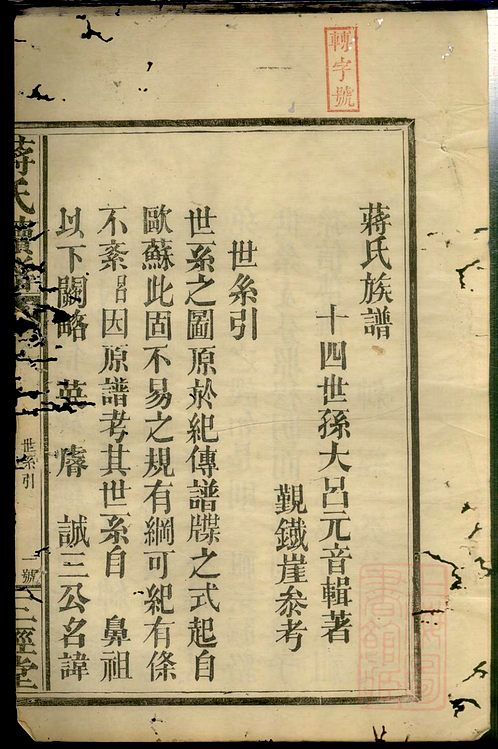 轉字號
蔣氏族譜
十四世孫大呂元音輯著
覲鐵崖參考
世系引
世系之圖原於紀傳譜牒之式起自
歐蘇此固不易之規有綱可紀有條
不紊呂因原譜考其世系自 鼻祖
以下闕略 英 濬 誠三公名諱
蔣氏
世系引
號
三徑堂